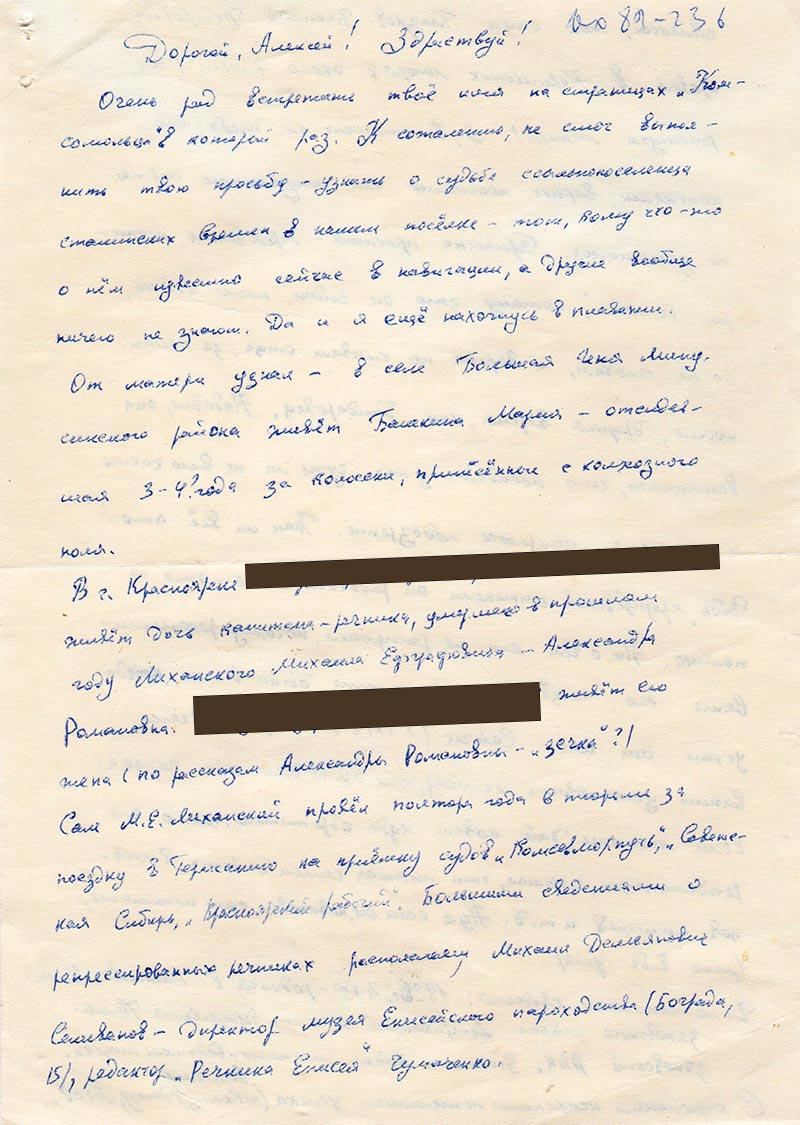 Вх 89-236
Дорогой, Алексей! Здравствуй!
Очень рад встретить твоё имя на страницах „Ком-
сомольца" в который раз. К сожалению, не смог выпол-
нить твою просьбу – узнать о судьбе ссыльнопоселенца
сталинских времен в нашем посёлке – тот, кому что-то
о нём известно сейчас в навигации, а другие вообще
ничего не знают. Да и я ещё нахожусь в плавании.
От матери узнал – в селе Большая Иня Мину-
синского района живёт Мария – отсидев-
шая 3-4? года за колоски, принесённые с колхозного
поля.
В г. Красноярске
живёт дочь капитана-речника, умершего в прошлом
году Лиханского Михаила Евграфовича – Александра
Романовна. живёт его
жена (по рассказам Александры Романовны – „зечка"?)
Сам М.Е. Лиханский провёл полтора года в тюрьме за
поездку в Германию на приёмку судов „Комсевморпуть", „Советс-
кая Сибирь", „Красноярский рабочий". Большими сведениями о
репрессированных речниках располагает Михаил Демьянович
Селиванов – директор музея Енисейского пароходства (Бограда,
15), редактор „Речника Енисея" Чумаченко.